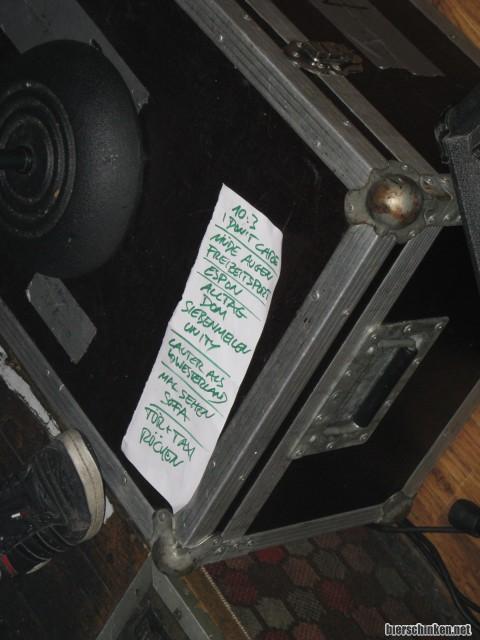 10:3
I DON'T CARE
MÜDE AUGEN
FREIZEITSPORT
ESPON
ALLTAG
DOM
SIEBENMEILEN
UNITY
LAUTER ALS
WESTERLAND
MAL SEHEN
SOFA
TÜR + TAXI
RÜCKEN
bierschinken.net